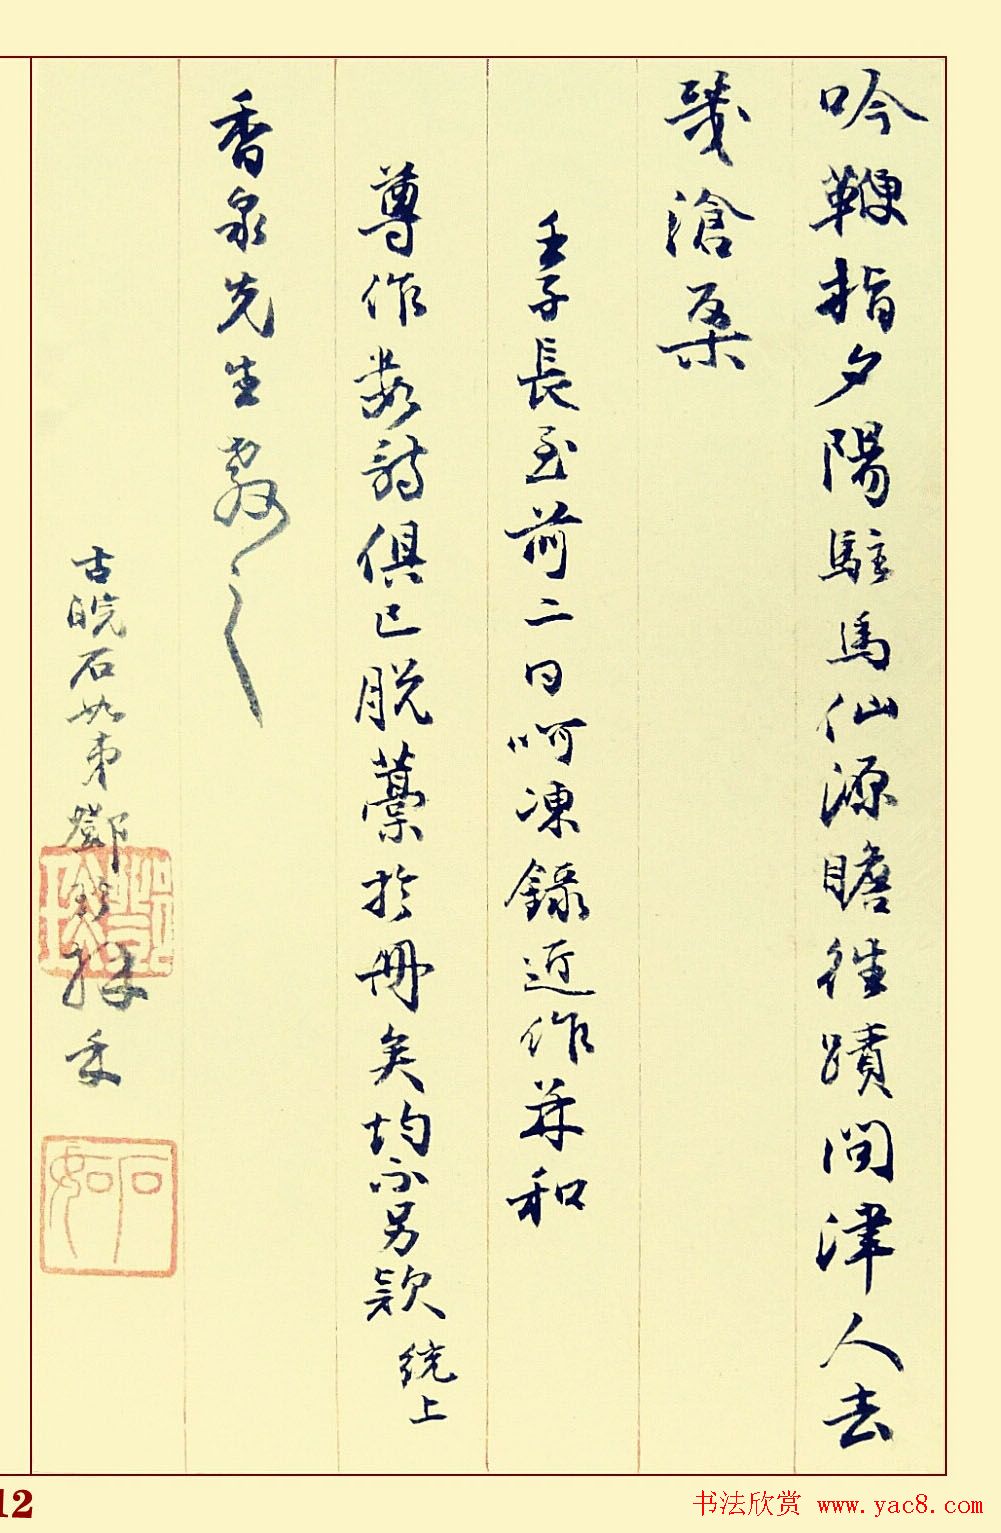 吟鞭指夕陽駐馬仙源瞻往蹟問津人去
幾滄桑
壬子長至前二日呵凍錄近作并和
尊作數詩俱已脫藁於冊矣均不另款統上
香泉先生教之
古皖石如弟鄧
石如
12
书法欣赏 www.yac8.com